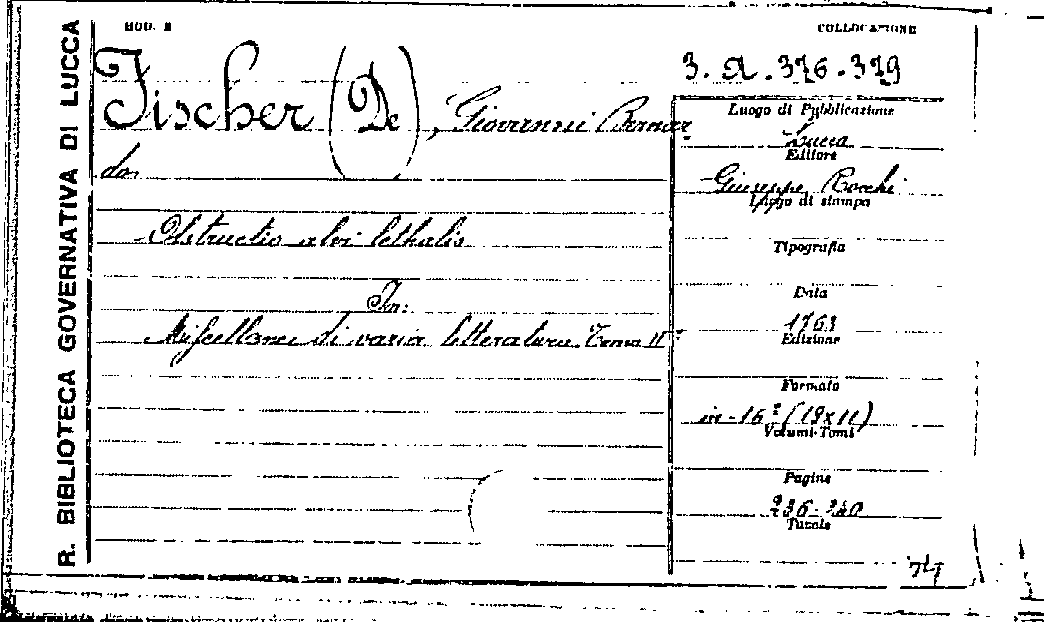 R. BIBLIOTECA GOVERNATIVA DI LUCCA
MOD. 2
COLLOCAZIONE
3. A. 376-379
Fischer (De), Giovanni Bernar
do.
Obstructio alvi lethalis
In:
Miscellanei di varia letteratura. Tomo II°
Luogo di Pubblicazione
Lucca
Editore
Giuseppe Rocchi
Luogo di stampa
Tipografia
Data
1763
Edizione
Formato
in-16° (19x11)
Volumi-Tomi
Pagine
236-240
Tavole